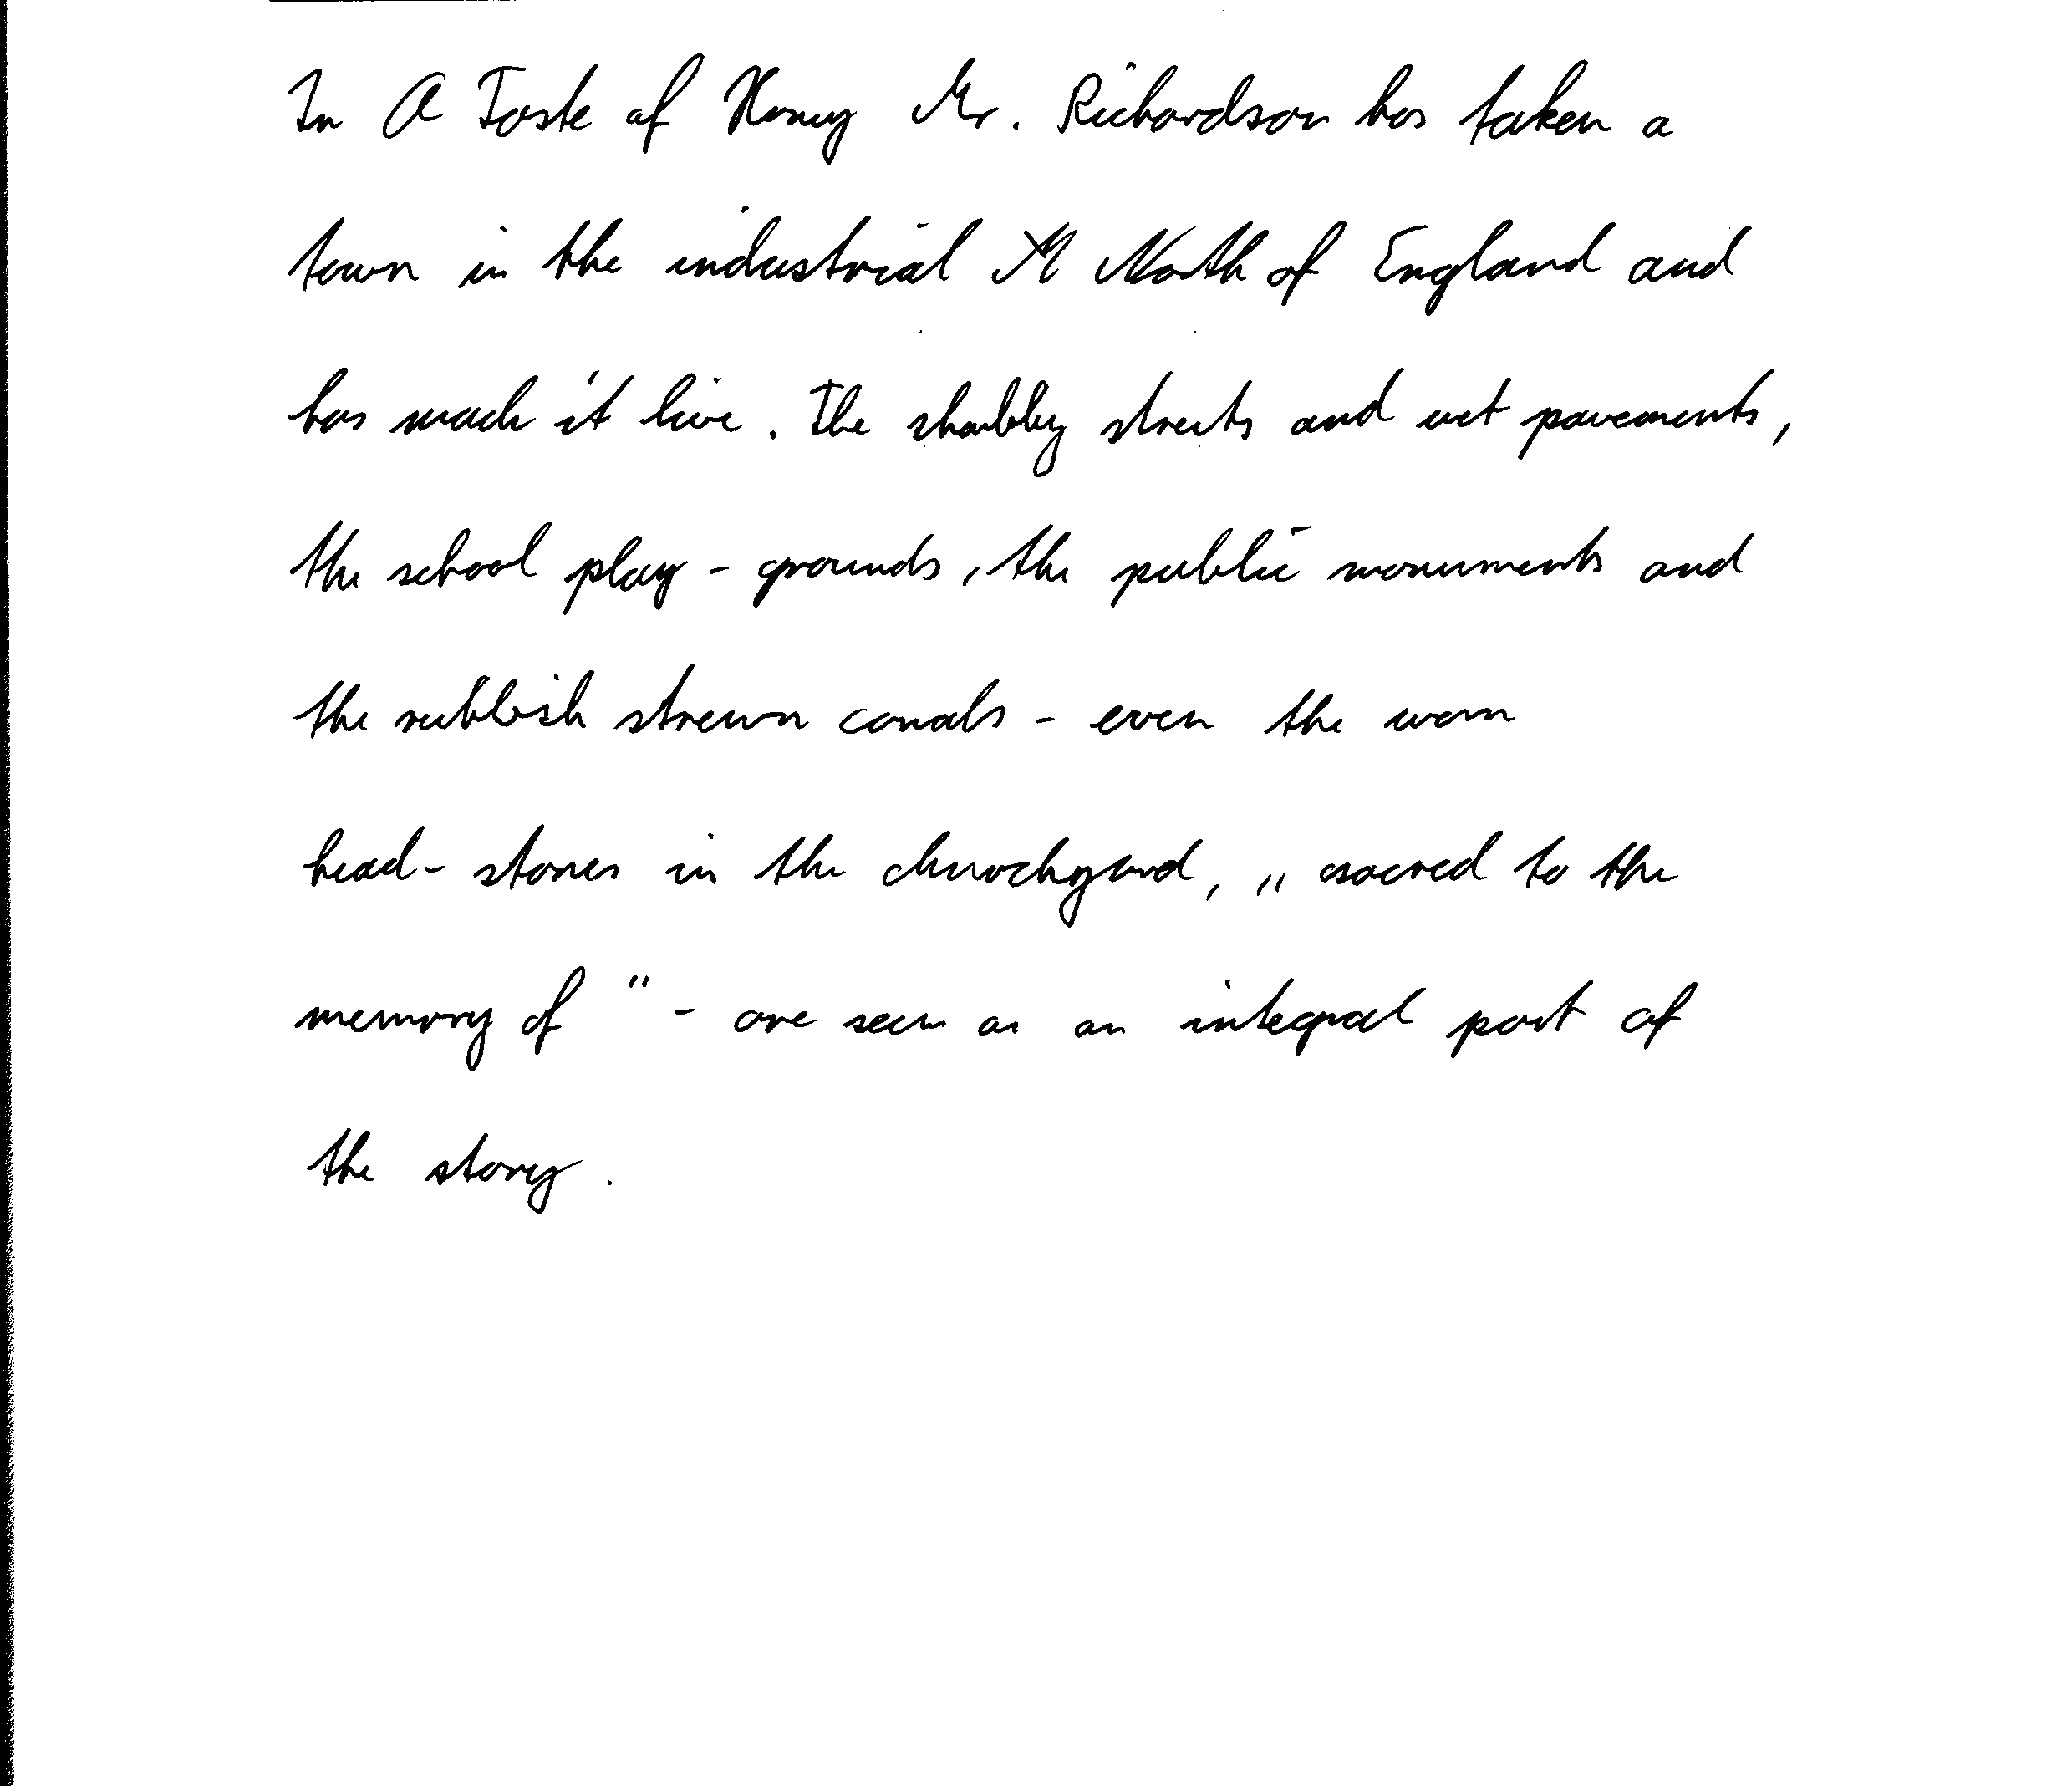 In A Taste of Honey Mr. Richardson has taken a
town in the industrial North of England and
has made it live. The shabby streets and wet pavements,
the school play - grounds, the public monuments and
the rubbish strewn canals - even the worn
head- stones in the churchyard, „ sacred to the
memory of “ - are seen as an integral part of
the story.